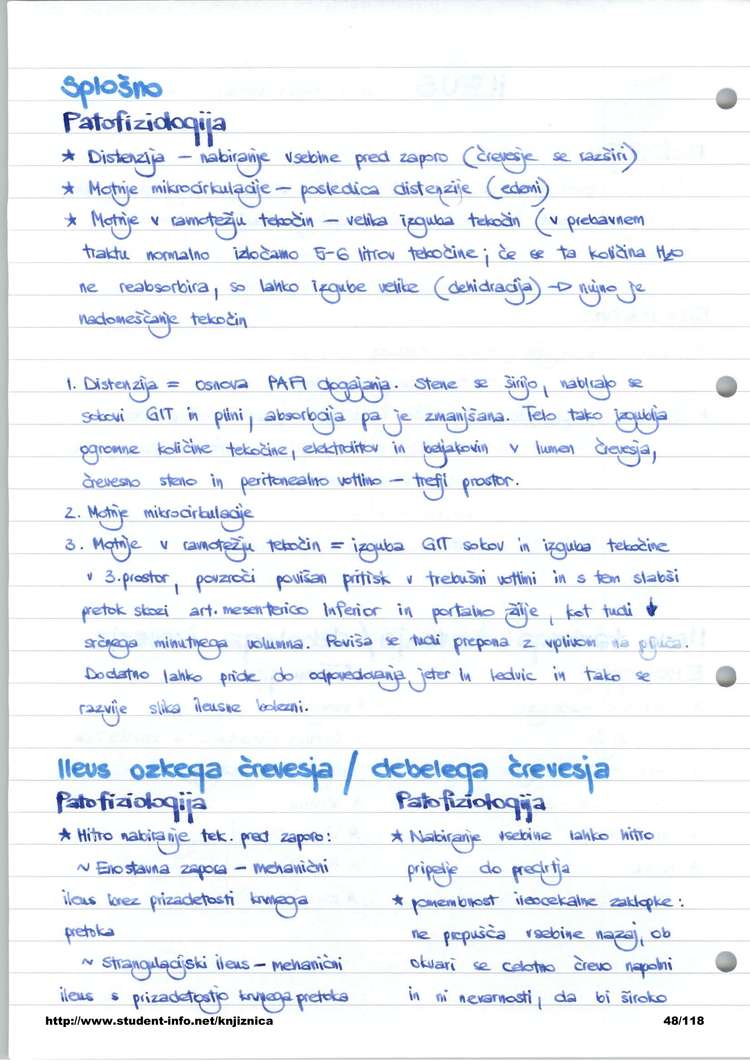 Splošno
Patofiziologija
* Distenzija – nabiranje vsebine pred zaporo (črevesje se razširi)
* Motnje mikrocirkulacije – posledica distenzije (edemi)
* Motnje v ravnotežju tekočin – velika izguba tekočin (v prebavnem
traktu normalno izločamo 5-6 litrov tekočine; če se ta količina H2O
ne reabsorbira, so lahko izgube velike (dehidracija) → nujno je
nadomeščanje tekočin
1. Distenzija = osnova PAFI dogajanja. Stene se širijo, nabirajo se
sokovi GIT in plini, absorbcija pa je zmanjšana. Telo tako izgublja
ogromne količine tekočine, elektrolitov in beljakovin v lumen črevesja,
črevesno steno in peritonealno votlino – tretji prostor.
2. Motnje mikrocirkulacije
3. Motnje v ravnotežju tekočin = izguba GIT sokov in izguba tekočine
v 3.prostor, povzroči povišan pritisk v trebušni votlini in s tem slabši
pretok skozi art. mesenterico Inferior in portalno žilje, kot tudi ↓
srčnega minutnega volumna. Poviša se tudi prepona z vplivom na pljuča.
Dodatno lahko pride do odpovedovanja jeter in ledvic in tako se
razvije slika ileusne bolezni.
Ileus ozkega črevesja / debelega črevesja
Patofiziologija
* Hitro nabiranje tek. pred zaporo:
~ Enostavna zapora – mehanični
ileus brez prizadetosti krvnega
pretoka
~ Strangulacijski ileus – mehanični
ileus s prizadetostjo krvnega pretoka
Patofiziologija
* Nabiranje vsebine lahko hitro
pripelje do predrtja
* pomembnost ileocekalne zaklopke:
ne prepušča vsebine nazaj, ob
okvari se celotno črevo napolni
in ni nevarnosti, da bi široko
http://www.student-info.net/knjiznica
48/118